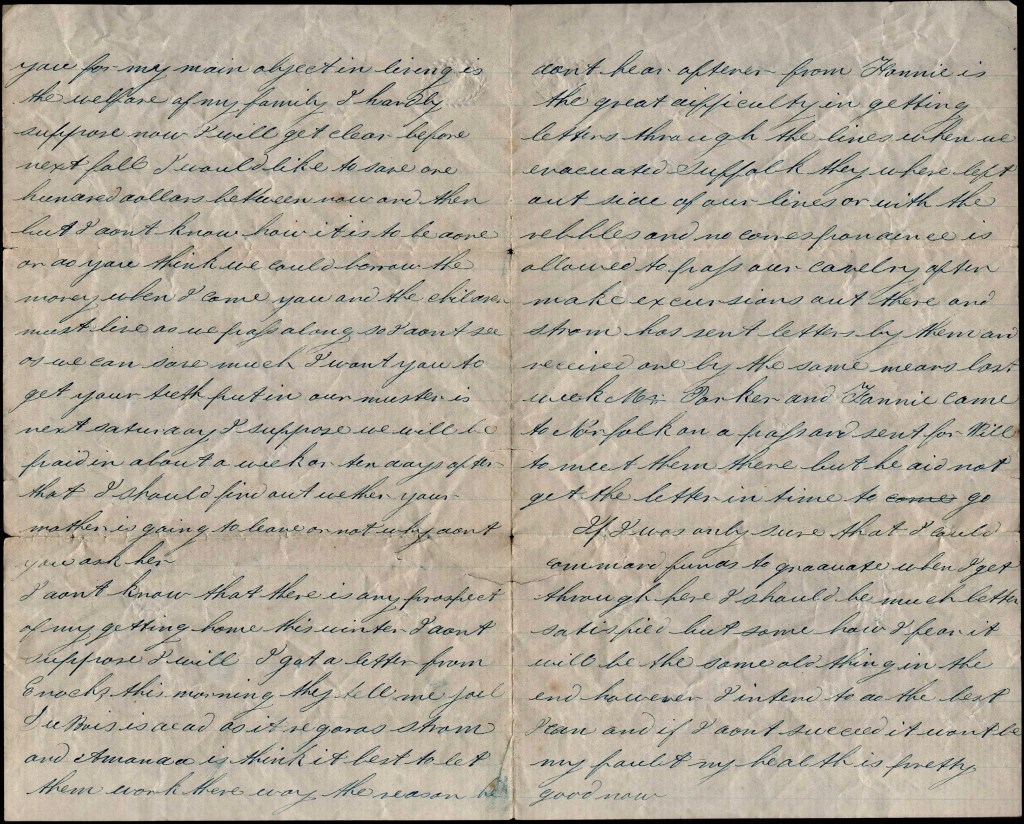 you for my main object in living is
the welfare of my family I hardly
suppose now I will get clear before
next fall I would like to save one
hundred dollars between now and then
but I dont know how it is to be done
or do you think we could borrow the
money when I come you and the children
must live as we pass along so I dont see
as we can save much I want you to
get your teeth put in our muster is
next saturday I suppose we will be
paid in about a week or ten days after
that I should find out wether your
mother is going to leave or not why dont
you ask her
I dont know that there is any prospect
of my getting home this winter I dont
suppose I will I got a letter from
Enochs this morning they tell me Joel
DuBois is dead as it regards strom
and Amanda is think it best to let
them work there way the reason he
dont hear oftener from Fannie is
the great difficulty in getting
letters through the lines when we
evacuated Suffolk they where left
out side of our lines or with the
rebbles and no correspondince is
allowed to pass our cavelry often
make excursions out there and
strom has sent letters by them and
received one by the same means last
week Mr Parker and Fannie came
to Norfolk on a pass and sent for Will
to meet them there but he did not
get the letter in time to come go
If I was only sure that I could
command funds to graduate when I get
through here I should be much better
satisfied but some how I fear it
will be the same old thing in the
end however I intend to do the best
I can and if I dont succeed it wont be
my fault my health is pretty
good now